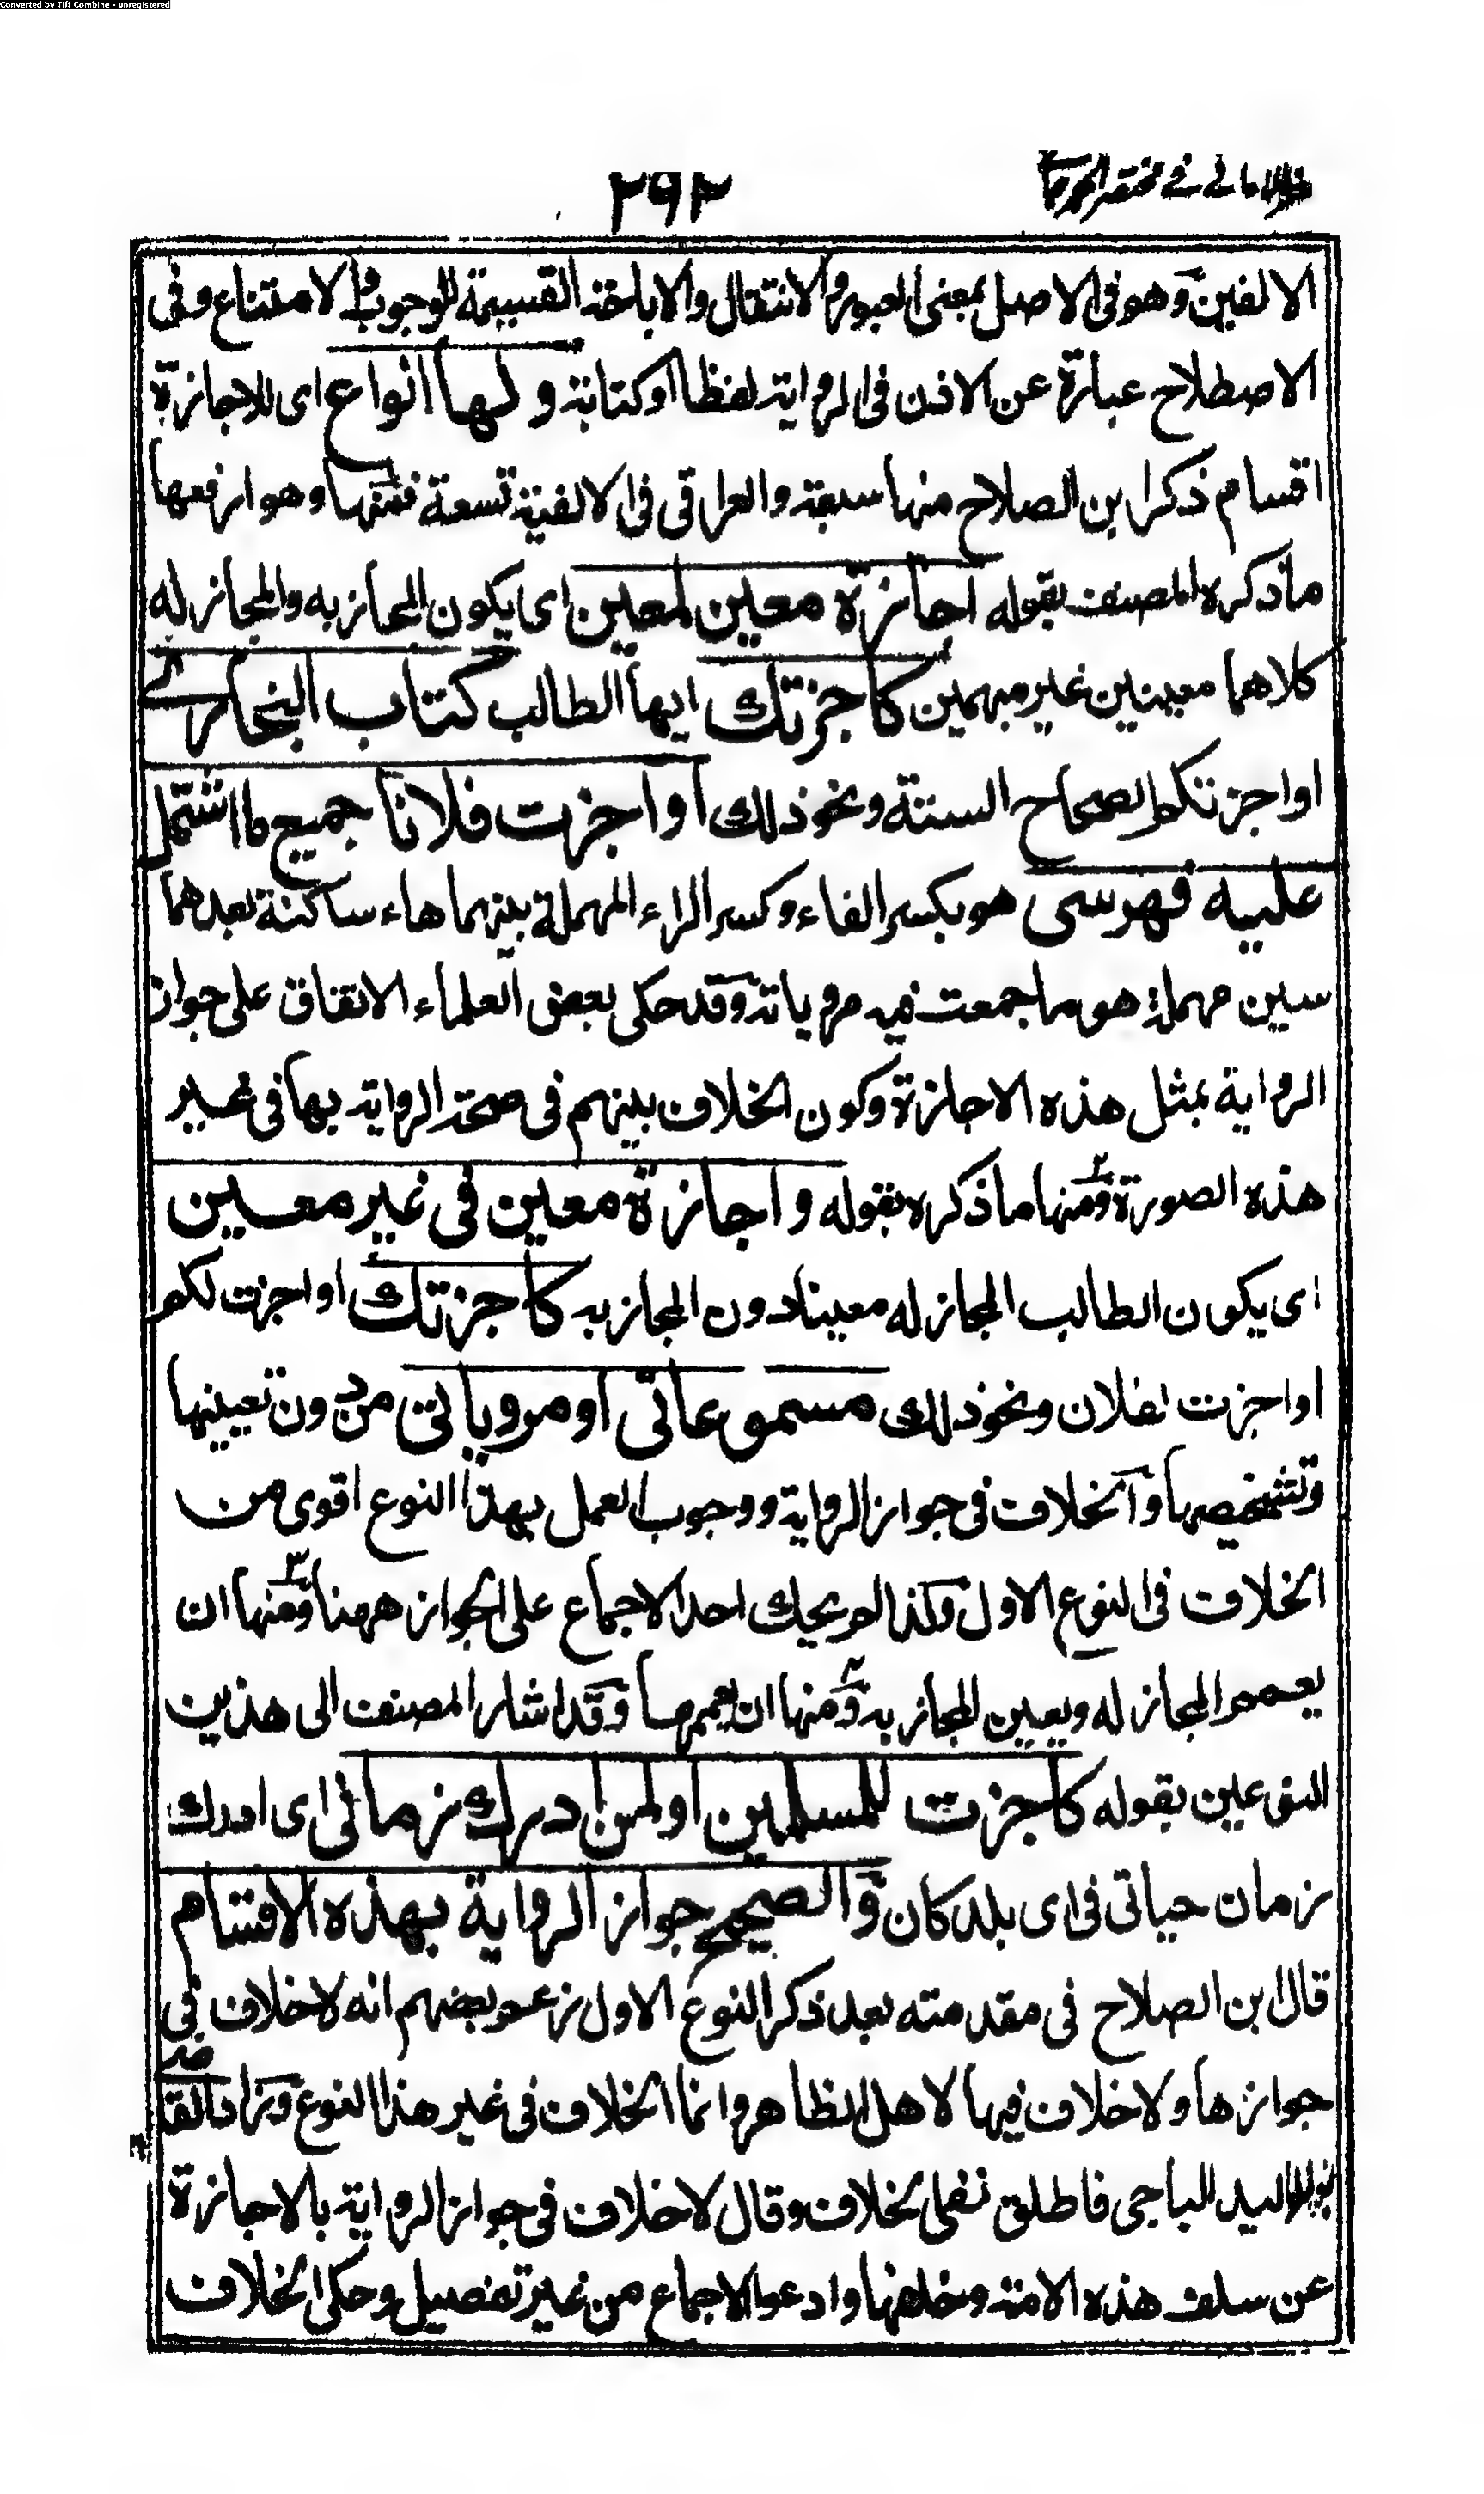 Converted by Tiff Combine - unregistered
ظفر الاماني في مختصر الجرجاني
٢٩٢
الالفين وهو فى الاصل بمعنى العبور والانتقال والاباحة القسيمة للوجوب والامتناع وفى
الاصطلاح عبارة عن الاذن فى الرواية لفظا او كتابة ولها انواع اى للاجازة
اقسام ذكر ابن الصلاح منها سبعة والعراقى فى الالفية تسعة فمنها وهو ارفعها
ما ذكره المصنف بقوله اجازة معين لمعين اى يكون المجاز به والمجاز له
كلاهما معينين غير مبهمين كاجزتك ايها الطالب كتاب البخارى
او اجزتكم الصحاح الستة ونحو ذلك او اجزت فلانا جميع ما اشتمل
عليه فهرسى هو بكسر الفاء وكسر الراء المهملة بينهما هاء ساكنة بعدهما
سين مهملة هو ما جمعت فيه مروياته وقد حكى بعض العلماء الاتفاق على جواز
الرواية بمثل هذه الاجازة وكون الخلاف بينهم فى صحة الرواية بها فى غير
هذه الصورة ومنها ٢ ما ذكره بقوله واجازة معين فى غير معين
اى يكون الطالب المجاز له معينا دون المجاز به كاجزتك او اجزت لكم
او اجزت لفلان ونحو ذلك مسموعاتى او مروياتى من دون تعيينها
وتشخيصها والخلاف فى جواز الرواية ووجوب العمل بهذا النوع اقوى من
الخلاف فى النوع الاول وكذا لم يحك احد الاجماع على الجواز ههنا ومنها ٣ ان
يعمم المجاز له ويعين المجاز به ومنها ٤ ان يعممها وقد اشار المصنف الى هذين
النوعين بقوله كاجزت للمسلمين او لمن ادرك زمانى اى ادرك
زمان حياتى فى اى بلد كان والصحيح جواز الرواية بهذه الاقسام
قال ابن الصلاح فى مقدمته بعد ذكر النوع الاول زعم بعضهم انه لا خلاف فى
جوازها ولا خلاف فيها لاهل الظاهر وانما الخلاف فى غير هذا النوع وزاد القاضى
ابو الوليد الباجى فاطلق نفى الخلاف وقال لا خلاف فى جواز الرواية بالاجازة
عن سلف هذه الامة وخلفها وادعوا الاجماع من غير تفصيل وحكى الخلاف